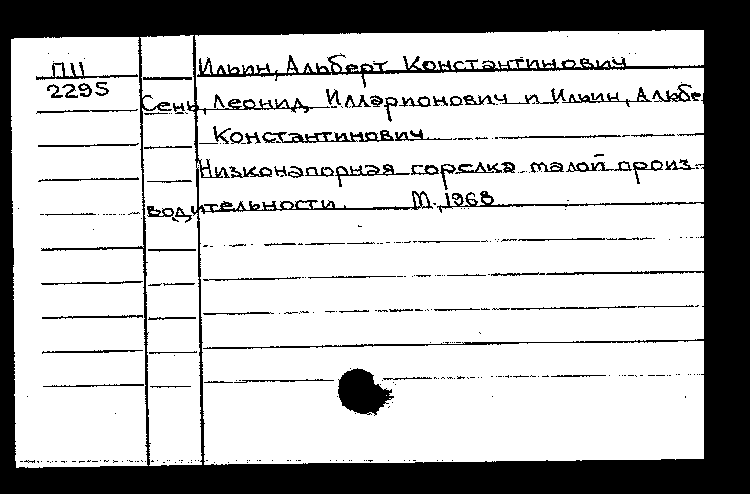 П11
2295
Ильин, Альберт Константинович
Сень, Леонид Илларионович и Ильин, Альбе
Константинович
Низконапорная горелка малой произ-
водительности. М., 1968